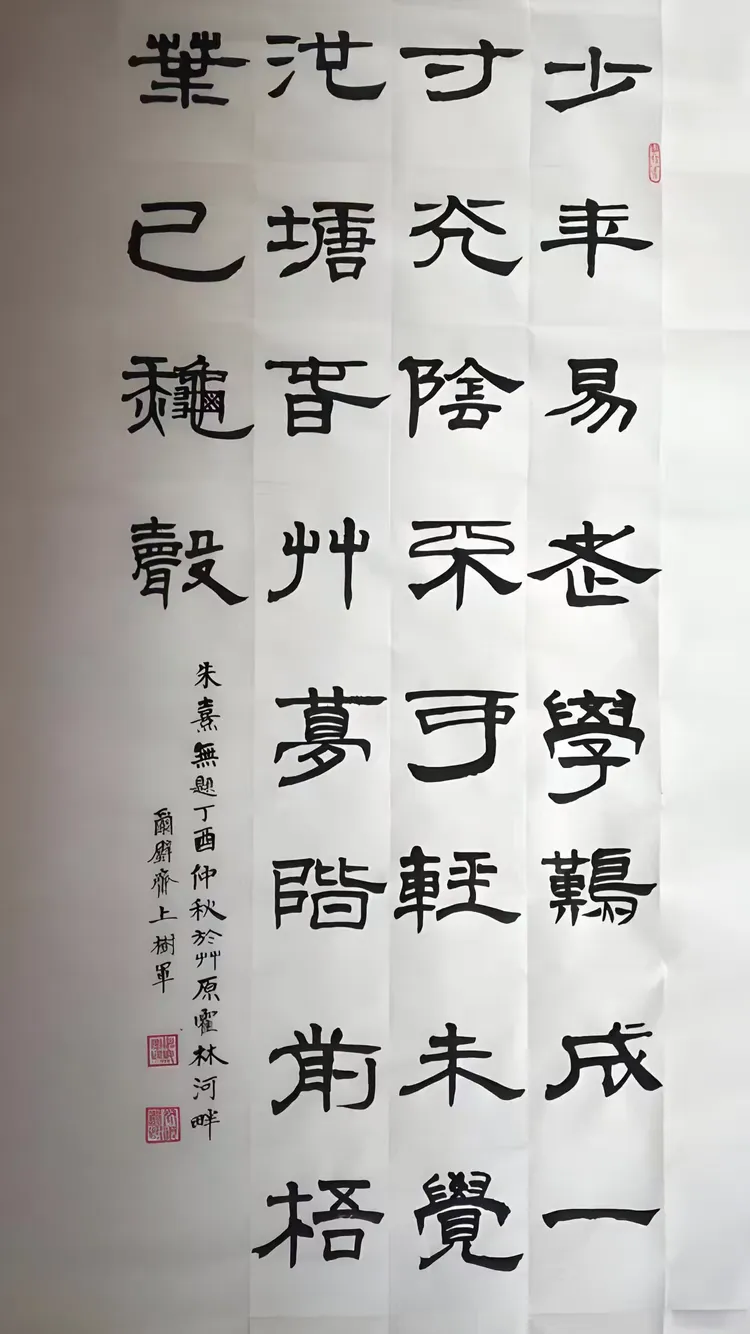 少年易老學難成一
寸光陰不可輕未覺
池塘春艸夢階前梧
葉已龝聲
朱熹無題丁酉仲秋於艸原霍林河畔
爾齋上樹軍